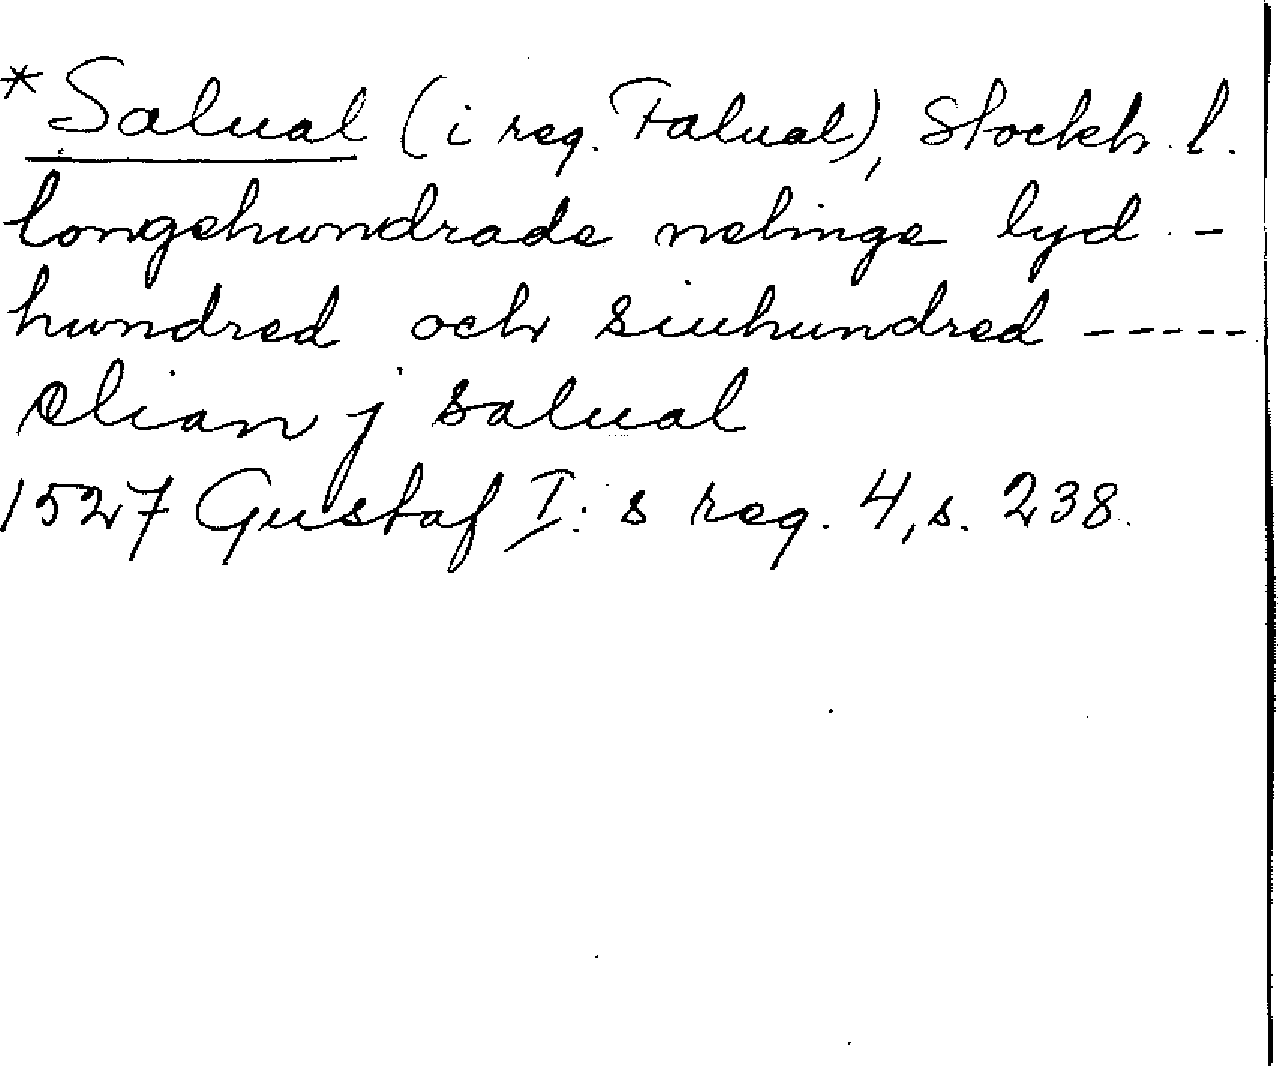 *Salual (i reg. Falual), Stockh. l.
longehundrade nehinge lyd -
hundred och siuhundred -----
elian j salual
1527 Gustaf I:s reg. 4, s. 238.